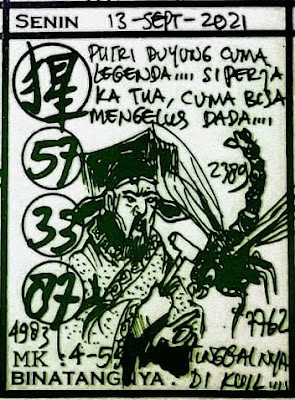 SENIN 13-SEPT-2021
PUTRI DUYUNG CUMA
LEGENDA.... SI PERJA
KA TUA, CUMA BISA
MENGELUS DADA....
57
2389
33
87
4983
7762
MK : 4-5
TINGGALNYA
BINATANGNYA : DI KUIL....